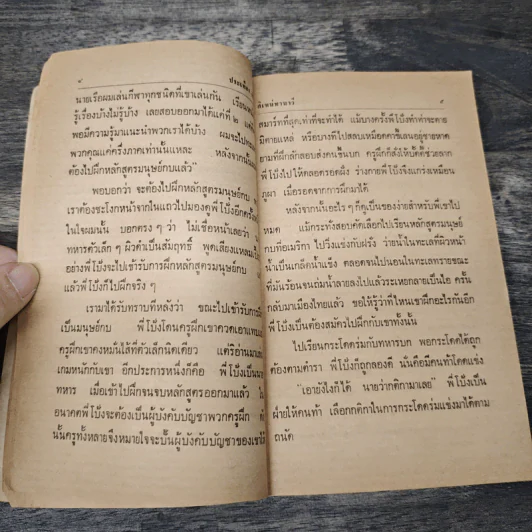 ๔
นายเรือผมเล่นกีฬาทุกชนิดที่เขาเล่นกัน เรียน
รู้เรื่องบ้างไม่รู้บ้าง เลยสอบออกมาได้แค่ที่ ๒
พอมีความรู้มาแนะนำพวกเราได้บ้าง ผมจะไป
พวกคุณแค่ครึ่งภาคเท่านั้นแหละ หลังจากนั้น
ต้องไปฝึกหลักสูตรมนุษย์กบแล้ว"
พอบอกว่า จะต้องไปฝึกหลักสูตรมนุษย์กบ
เราต้องชะโงกหน้าจากในแถวไปมองดูพี่โป๋งอีกครั้ง
ในใจผมนั้น บอกตรง ๆ ว่า ไม่เชื่อหน้าเลยว่า
ทหารตัวเล็ก ๆ ผิวดำเป็นสัมฤทธิ์ พูดเสียงแหลม
อย่างพี่โป๋งจะไปเข้ารับการฝึกหลักสูตรมนุษย์กบ
แล้วพี่โป๋งก็ไปฝึกจริง ๆ
เรามาได้รับทราบทีหลังว่า ขณะไปเข้ารับการฝึก
เป็นมนุษย์กบ พี่โป๋งโดนครูฝึกเขาควดเอาแทบ
ครูฝึกเขาคงหมั่นไส้ที่ตัวเล็กนิดเดียว แต่ริอ่านมา
เกมหนักกับเขา อีกประการหนึ่งก็คือ พี่โป๋งเป็น
ทหาร เมื่อเข้าไปฝึกจนจบหลักสูตรออกมาแล้ว
อนาคตพี่โป๋งจะต้องเป็นผู้บังคับบัญชาพวกครูฝึก
นั้นครูทั้งหลายจึงหมายใจจะปั้นผู้บังคับบัญชาของเขา
๕
สมาร์ทที่สุดเท่าที่จะทำได้ แม้บางครั้งพี่โป๋งทำท่าจะตาย
มิตายแหล่ หรือบางทีไปสลบเหมือดคาขี้เลนอยู่ชายหาด
ตามที่ฝึกสักลอบส่งคนขึ้นบก ครูฝึกก็สั่งให้บั๊ดดี้ช่วยลาก
พี่โป๋งไปให้ตลอดรอดฝั่ง ร่างกายพี่โป๋งจึงแกร่งเหมือน
ภูผา เมื่อรอดจากการฝึกมาได้
หลังจากนั้นอะไร ๆ ก็ดูเป็นของง่ายสำหรับพี่เขาไป
หมด แม้กระทั่งสอบคัดเลือกไปเรียนหลักสูตรมนุษย์
กบที่อเมริกา ไปวิ่งแข่งกับฝรั่ง ว่ายน้ำในทะเลที่ผิวหน้า
น้ำเป็นเกล็ดน้ำแข็ง ตลอดจนไปนอนในทะเลทรายขณะ
ที่มันร้อนจนถ่มน้ำลายลงไปแล้วระเหยกลายเป็นไอ ครั้น
กลับมาเมืองไทยแล้ว ขอให้รู้ว่าที่ไหนเขาฝึกอะไรกันอีก
พี่โป๋งเป็นต้องสมัครไปฝึกกับเขาทั้งนั้น
ไปเรียนกระโดดร่มกับทหารบก พอกระโดดได้ถูก
ต้องตามตำรา พี่โป๋งก็ถูกลองดี นั่นคือมีคนท้าโดดแข่ง
"เอายังไงก็ได้ นายว่ากติกามาเลย" พี่โป๋งเป็น
ฝ่ายให้คนท้า เลือกกติกาในการกระโดดร่มแข่งมาได้ตาม
ถนัด